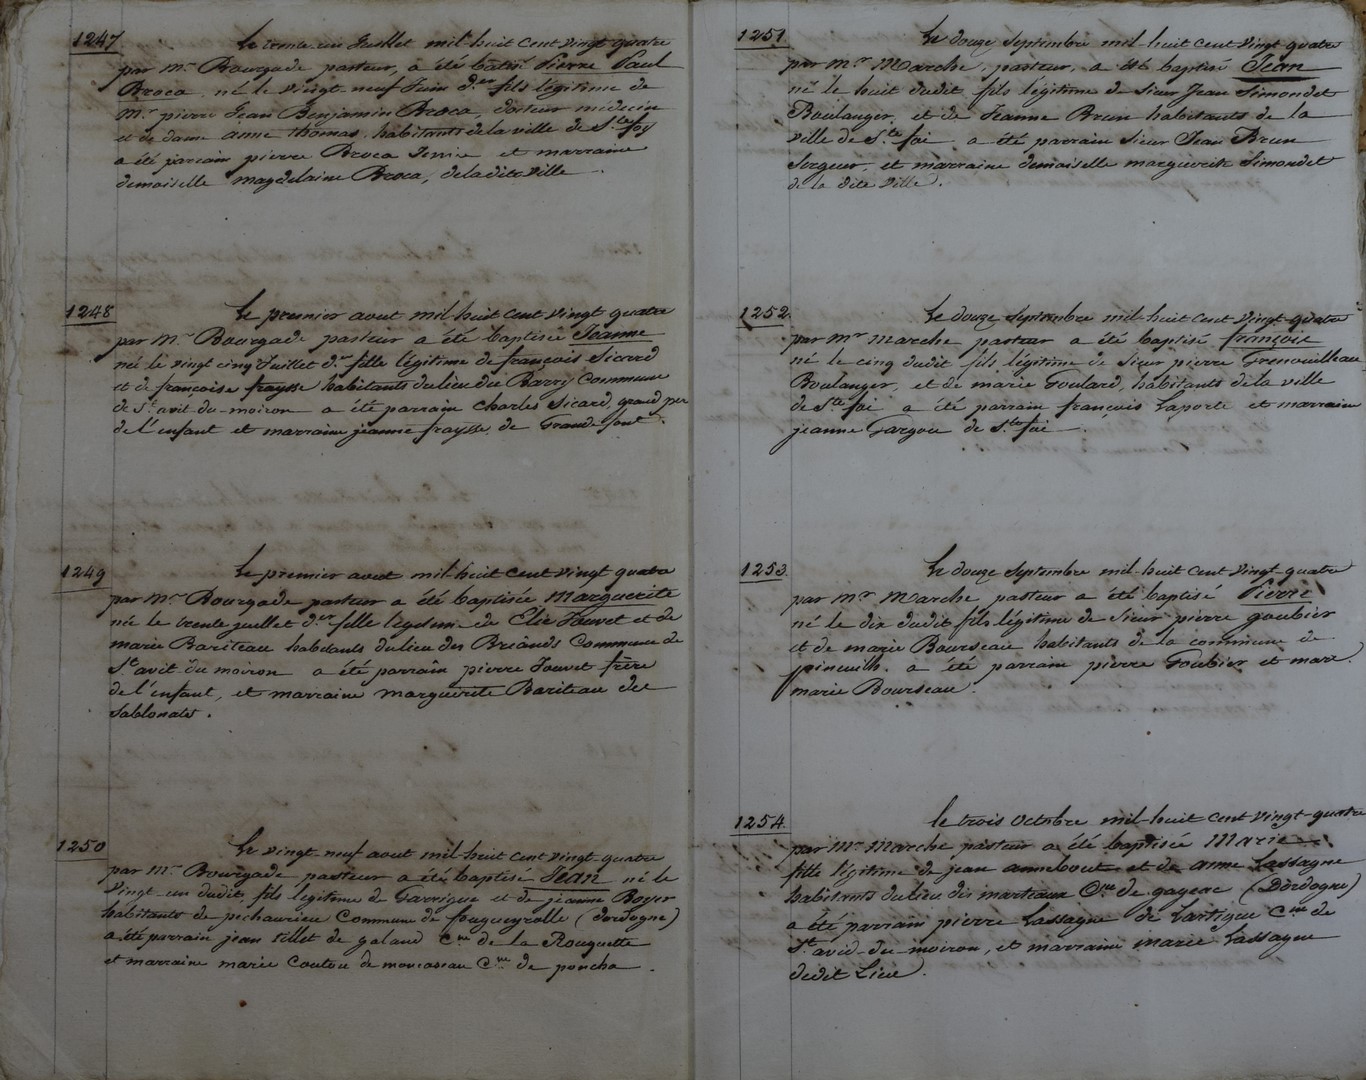 1247
Le trente un Juillet mil huit cent vingt quatre
par mr Bourgade pasteur, a été batisé Pierre Paul
Broca, né le vingt-neuf Juin der fils légitime de
Mr pierre Jean Benjamin Broca, docteur médecin
et de dame anne thomas, habitants de la ville de Ste foy
a été parrain pierre Broca et marraine
demoiselle magdelaine Broca, de la dite ville.
1248
Le premier aout mil huit cent vingt quatre
par mr Bourgade pasteur a été baptisée Jeanne
né le vingt cinq Juillet der fille légitime de françois Sicard
et de françoise fraysse habitants du lieu du Barry Commune
de St avit du-moiron a été parrain Charles Sicard, grand per
de l'enfant et marraine jeanne fraysse, de Grande font.
1249
Le premier aout mil huit cent vingt quatre
par mr Bourgade pasteur a été baptisée Marguerite
né le trente juillet der fille legitime de Elie Jouvet et de
marie Bariteau habitants du lieu des Briands Commune de
St avit du moiron a été parrain pierre Jouvet frère
de l'enfant, et marraine marguerite Bariteau des
Sablonats.
1250
Le vingt-neuf aout mil huit cent vingt-quatre
par mr Bourgade pasteur a été baptisé Jean né le
vingt-un dudit, fils legitime de Garrigue et de jeanne Boyer
habitants de pechaurieu Commune de fougueyrolle (dordogne)
a été parrain jean tillet de galand Cne de la Rouquette
et marraine marie Couture de moncaseau Cne de poncha.
1251
Le douze Septembre mil-huit cent vingt quatre
par mr Marche, pasteur, a été baptisé Jean
né le huit dudit fils légitime de Sieur Jean Simondet
Boulanger, et de Jeanne Brun habitants de la
ville de Ste foi a été parrain Sieur Jean Brun
Sergeur, et marraine demoiselle marguerite Simondet
de la dite ville.
1252
Le douze Septembre mil-huit cent vingt-quatre
par mr marche pasteur a été baptisé françois
né le cinq dudit fils légitime de Sieur pierre Grenouilleau
Boulanger, et de marie Goulard, habitants de la ville
de Ste foi a été parrain françois Laporte et marraine
jeanne Gargou de Ste foi.
1253
Le douze Septembre mil-huit cent vingt quatre
par mr Marche pasteur a été baptisé Pierre
né le dix dudit fils légitime de Sieur pierre goubier
et de marie Bourseau habitants de la commune de
pineuilh. a été parrain pierre Goubier et marr.
marie Bourseau.
1254
Le trois Octobre mil-huit cent vingt-quatre
par Mr Marche pasteur a été baptisée Marie
fille légitime de jean annebout et de anne Lassagne
habitants du lieu des marteaux Cne de gageac (Dordogne)
a été parrain pierre Lassagne de Lartigue Cne de
St avid-du-moiron, et marraine marie Lassagne
dudit Lieu.